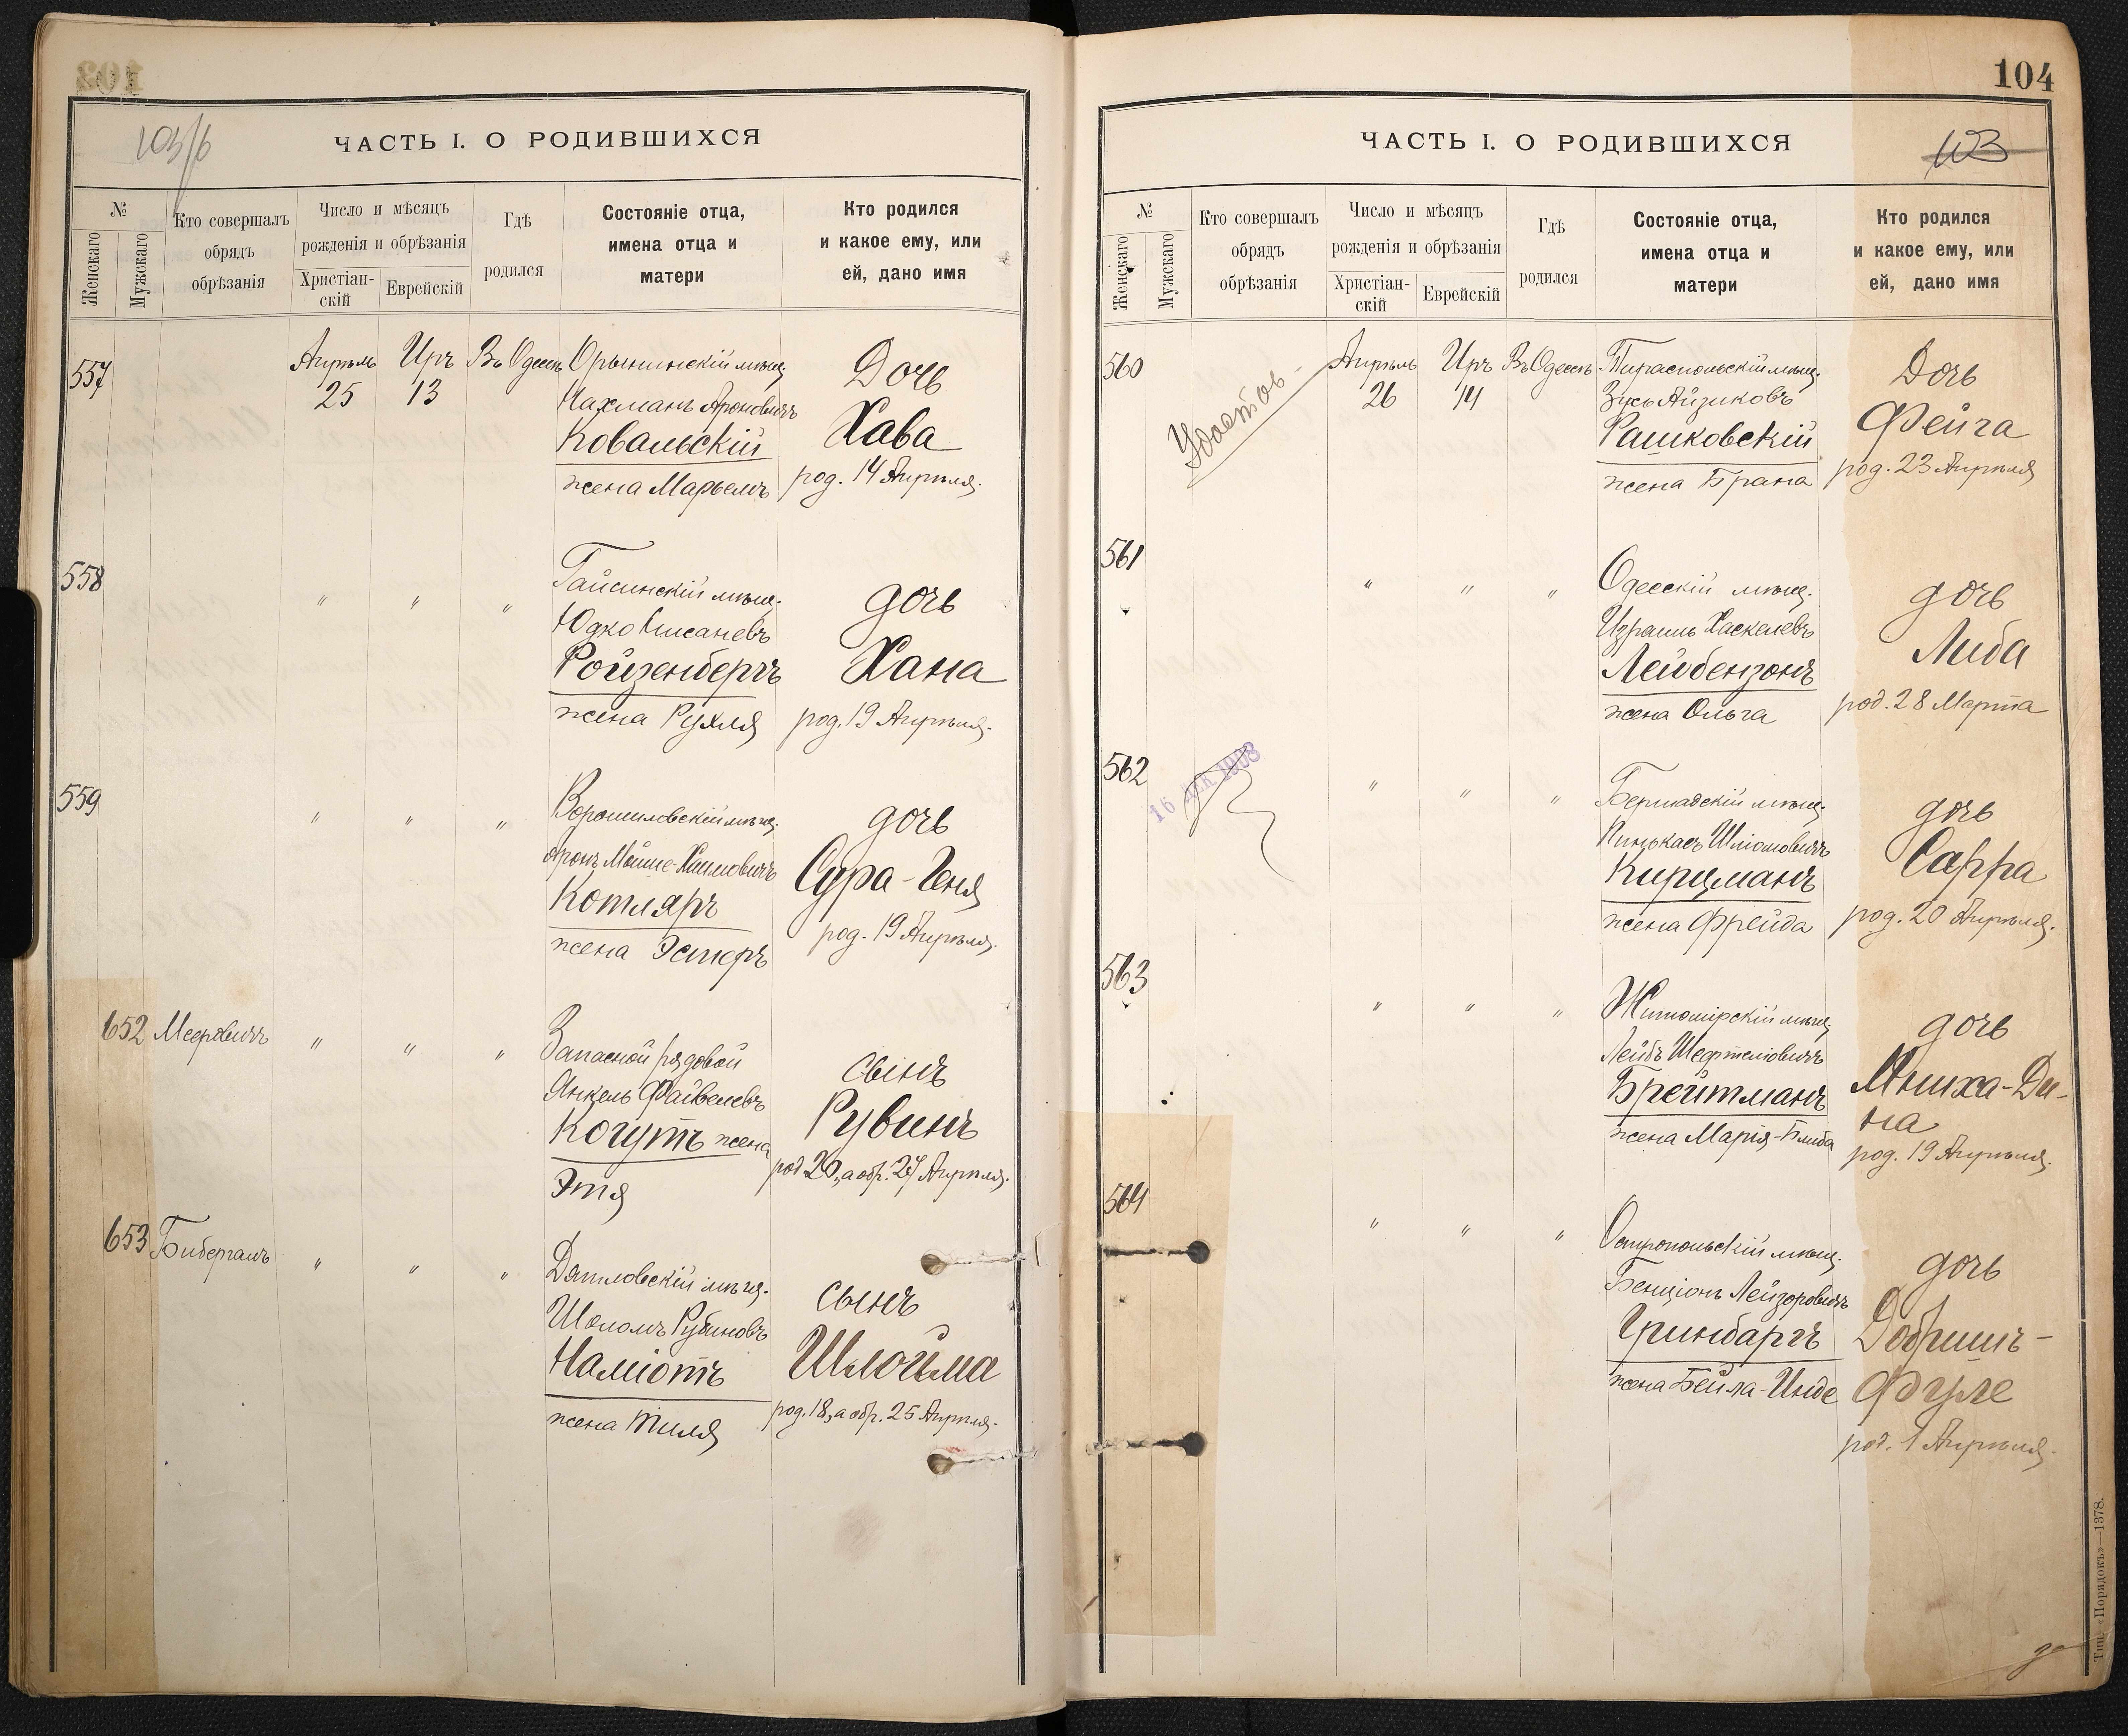 103/б
ЧАСТЬ I. О РОДИВШИХСЯ
№
Женскаго
Мужскаго
Кто совершалъ
обрядъ
обрѣзанія
Число и мѣсяцъ
рожденія и обрѣзанія
Христіан-
скій
Еврейскій
Гдѣ
родился
Состояніе отца,
имена отца и
матери
Кто родился
и какое ему, или
ей, дано имя
557
Апрѣль
25
Иръ
13
Въ Одессѣ
Орынинскій мѣщ.
Нахманъ Ароновичъ
Ковальскій
жена Марьемъ
Дочь
Хава
род. 14 Апрѣля.
558
" " "
Гайсинскій мѣщ.
Юдко Нисаневъ
Ройзенбергъ
жена Рухля
дочь
Хана
род. 19 Апрѣля.
559
" " "
Ворошиловскій мѣщ.
Аронъ Мойше-Хаимовичъ
Котляръ
жена Эстеръ
дочь
Сура-Геня
род. 19 Апрѣля.
652 Мееровичъ
" " "
Запасной рядовой
Янкель Файвелевъ
Когутъ жена
Этя
сынъ
Рувинъ
род. 20, а обр. 27 Апрѣля.
653 Бибергалъ
" " "
Дятловскій мѣщ.
Шоломъ Рубиновъ
Наміотъ
жена Тиля
сынъ
Шлойма
род. 18, а обр. 25 Апрѣля.
104
ЧАСТЬ I. О РОДИВШИХСЯ
103
№
Женскаго
Мужскаго
Кто совершалъ
обрядъ
обрѣзанія
Число и мѣсяцъ
рожденія и обрѣзанія
Христіан-
скій
Еврейскій
Гдѣ
родился
Состояніе отца,
имена отца и
матери
Кто родился
и какое ему, или
ей, дано имя
560
Удостов.
Апрѣль
26
Иръ
14
Въ Одессѣ
Тираспольскій мѣщ.
Зусь Айзиковъ
Рашковскій
жена Брана
Дочь
Фейга
род. 23 Апрѣля
561
" " "
Одесскій мѣщ.
Израиль Хаскелевъ
Лейбензонъ
жена Ольга
дочь
Либа
род. 28 Марта
562
16 ДЕК 1908
" " "
Бершадскій мѣщ.
Пинькасъ Шліомовичъ
Кирцманъ
жена Фрейда
дочь
Сарра
род. 20 Апрѣля.
563
" " "
Житомірскій мѣщ.
Лейбъ Шефтеліовичъ
Брейтманъ
жена Марія-Блюба
дочь
Мниха-Ди-
на
род. 19 Апрѣля.
564
" " "
Остропольскій мѣщ.
Бенціонъ Лейзоровичъ
Гринбаргъ
жена Бейла-Инде
дочь
Добришъ-
Фуле
род. 1 Апрѣля.
Тип. «Порядокъ»—1378.